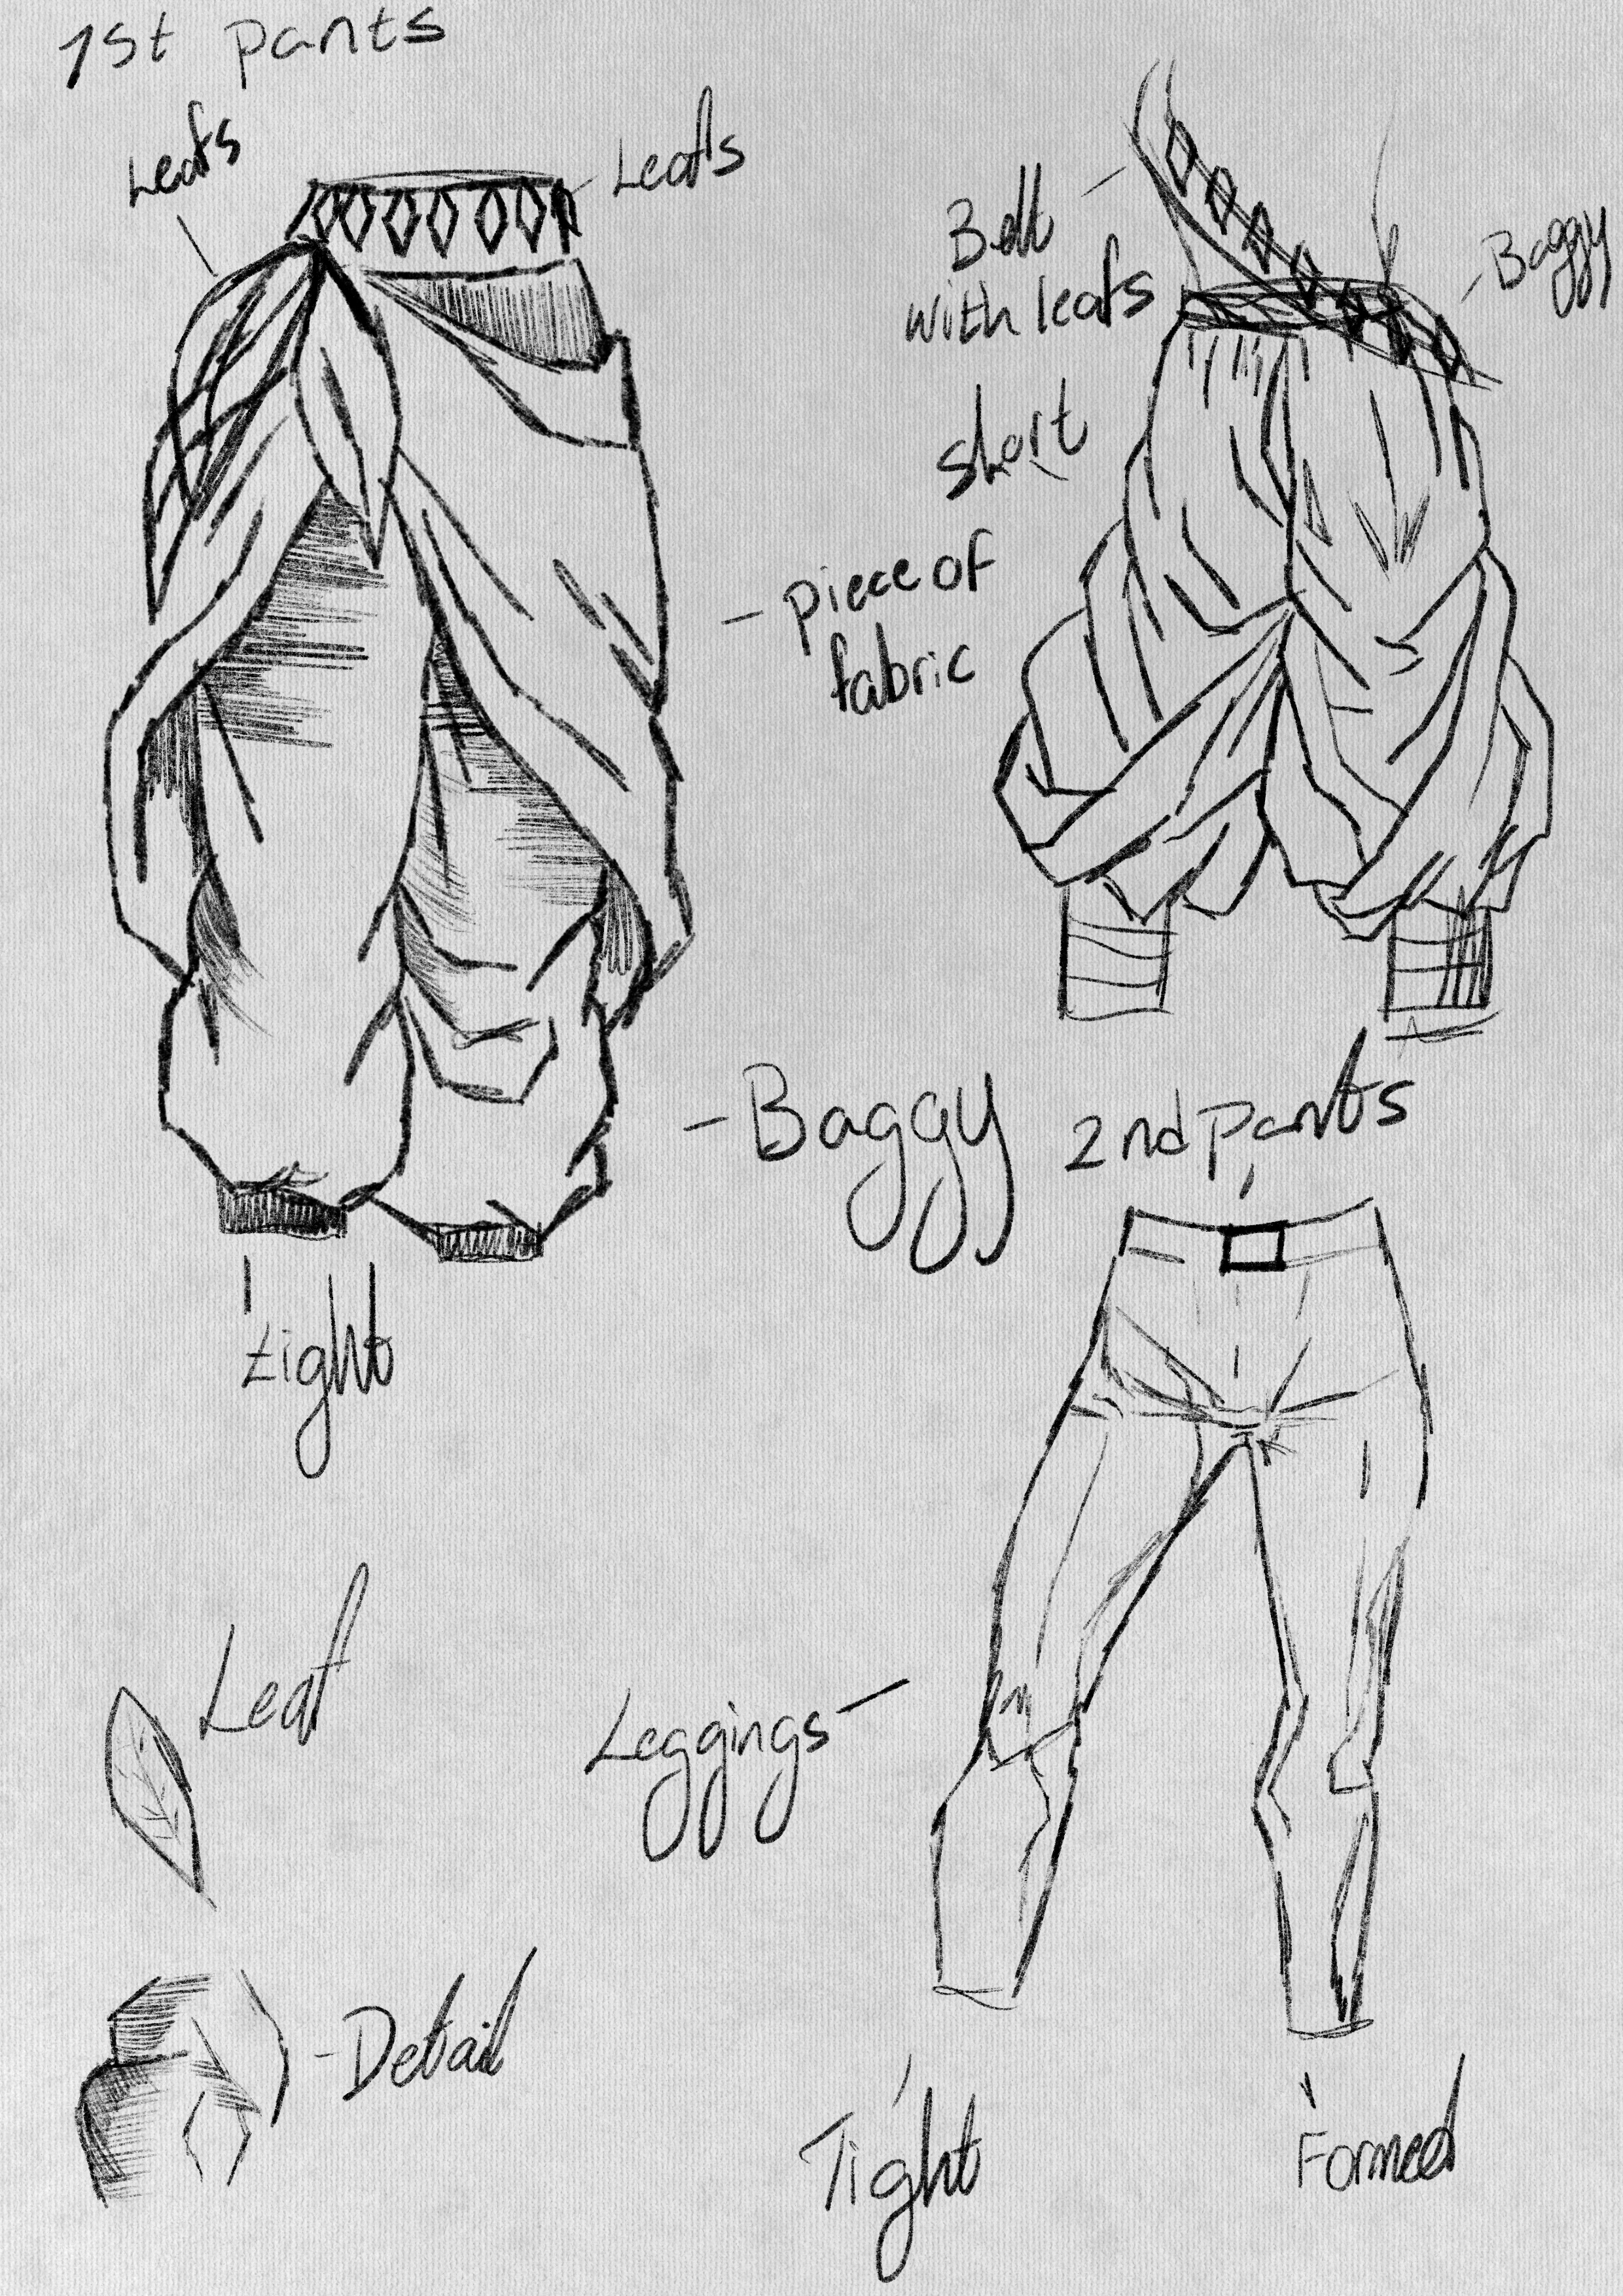 1st pants
Leafs
Leafs
Belt
with leafs
Baggy
short
piece of
fabric
Baggy
2nd pants
tight
Leaf
Leggings
Detail
Tight
Formed